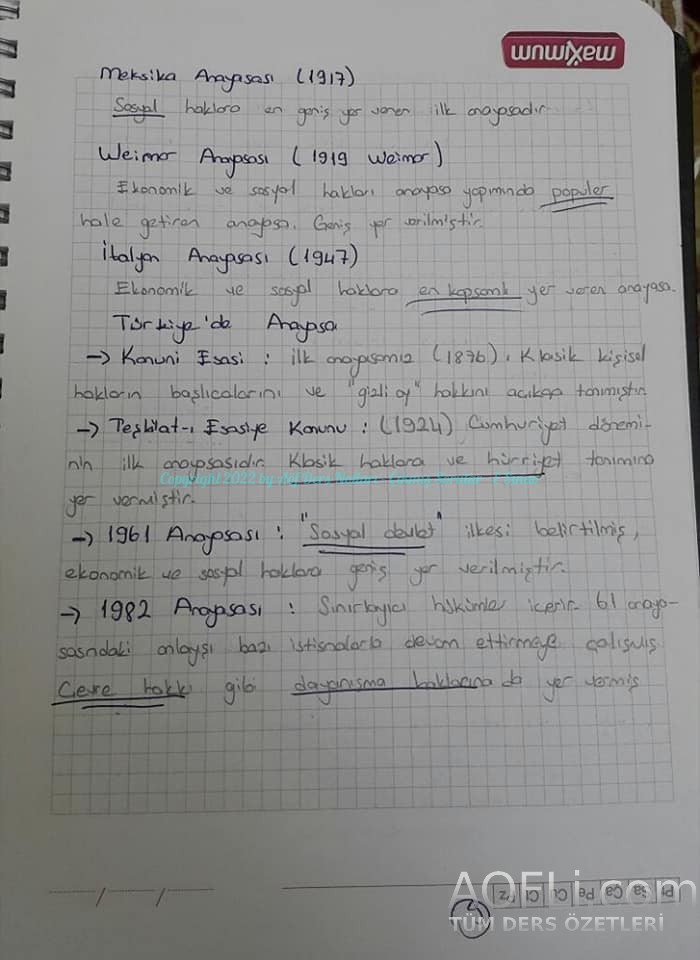 maximum
Meksika Anayasası (1917)
Sosyal haklara en geniş yer veren ilk anayasadır.
Weimar Anayasası (1919 Weimar)
Ekonomik ve sosyal hakları anayasa yapımında popüler
hale getiren anayasa. Geniş yer verilmiştir.
İtalyan Anayasası (1947)
Ekonomik ve sosyal haklara en kapsamlı yer veren anayasa.
Türkiye'de Anayasa
→ Kanuni Esasi : ilk anayasamız (1876). Klasik kişisel
hakların başlıcalarını ve "gizli oy" hakkını açıkça tanımıştır.
→ Teşkilat-ı Esasiye Kanunu : (1924) Cumhuriyet dönemi-
nin ilk anayasasıdır. Klasik haklara ve hürriyet tanımına
Copyright 2022 by
yer vermiştir.
→ 1961 Anayasası : "Sosyal devlet" ilkesi belirtilmiş,
ekonomik ve sosyal haklara geniş yer verilmiştir.
→ 1982 Anayasası : Sınırlayıcı hükümler içerir. 61 anaya-
sasındaki anlayışı bazı istisnalarla devam ettirmeye çalışmış
Çevre hakkı gibi dayanışma haklarına da yer vermiş
Pt Sa Ça Pe Cu Ct Pz
AOFLi.com
TÜM DERS ÖZETLERİ